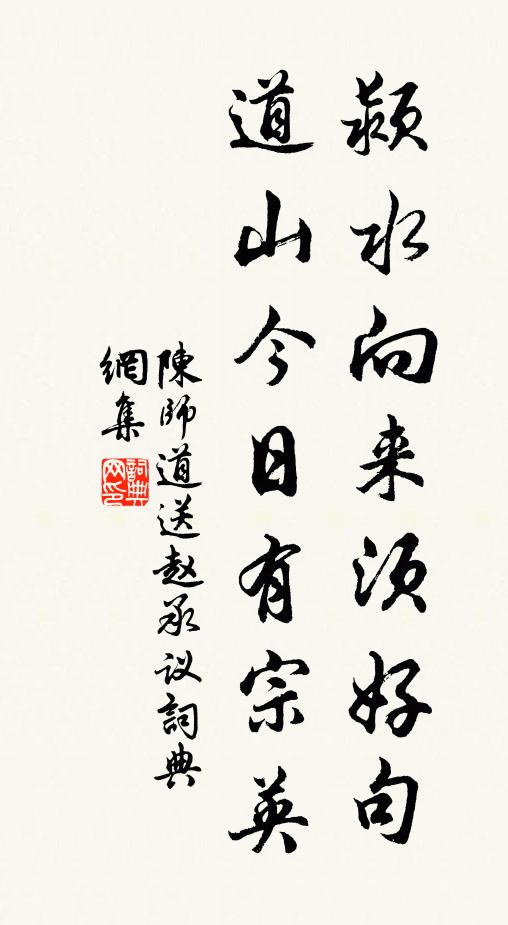 颍水向来须好句
道山今日有宗英
陳師道送赵承议詞典
網集
詞典
网印